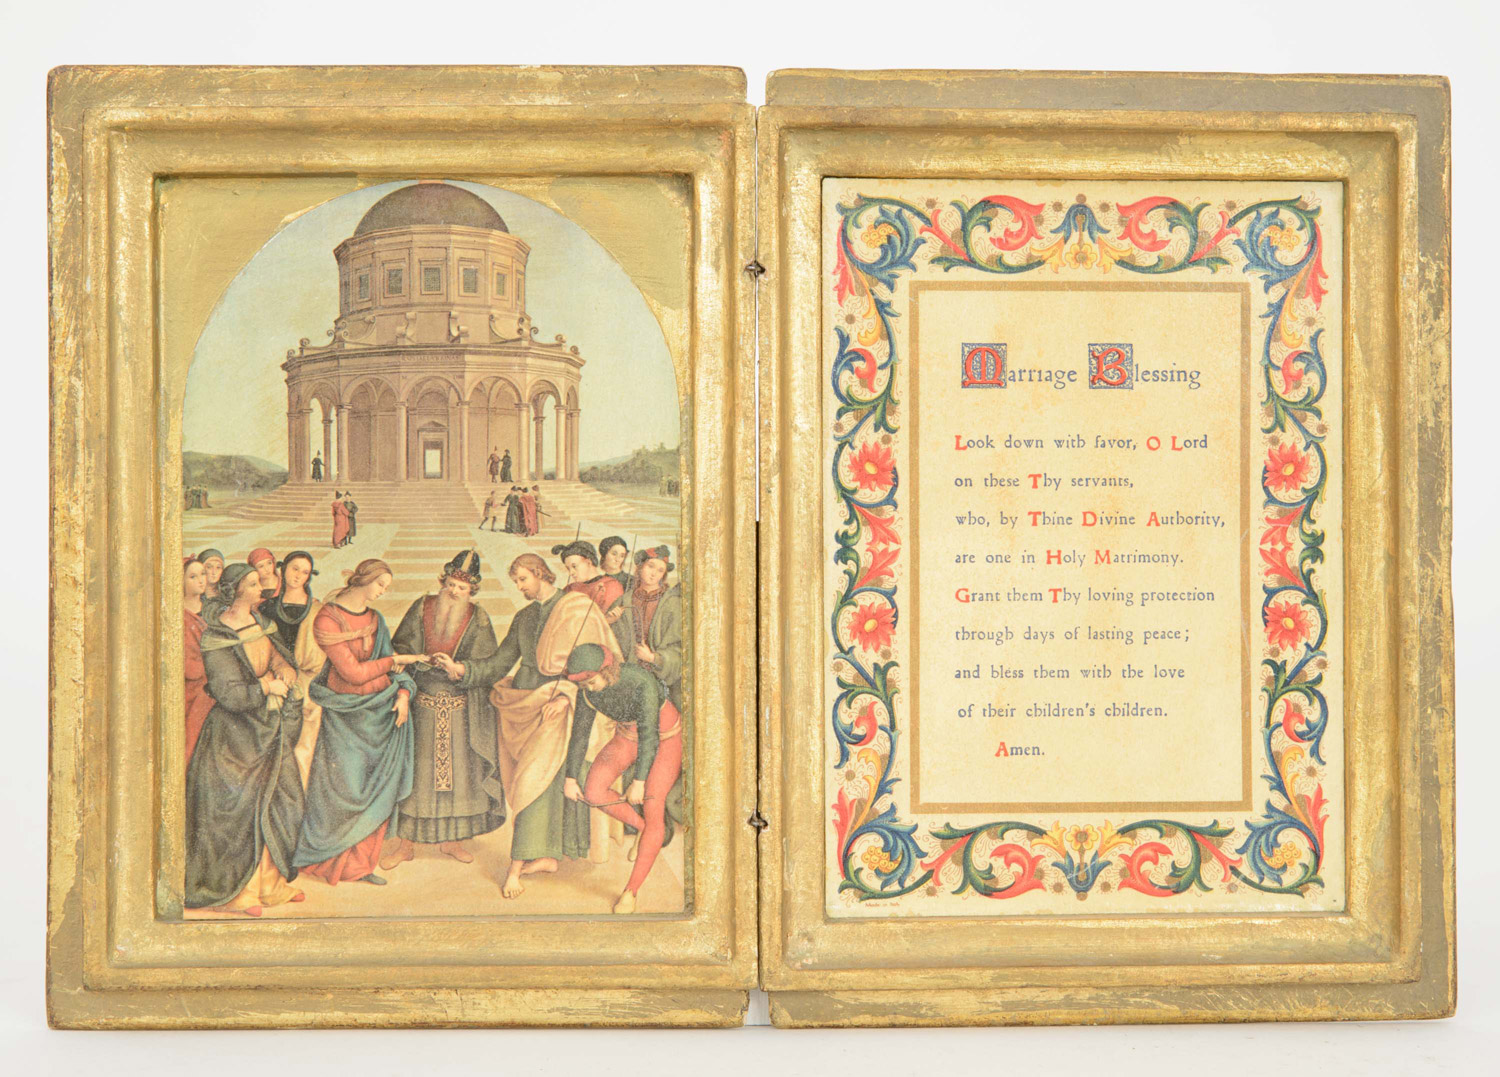 Marriage Blessing
Look down with favor, O Lord
on these Thy servants,
who, by Thine Divine Authority,
are one in Holy Matrimony.
Grant them Thy loving protection
through days of lasting peace;
and bless them with the love
of their children's children.
Amen.
Made in Italy